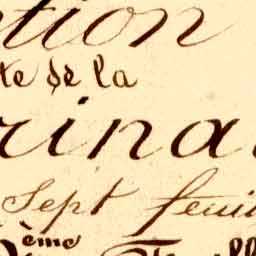 tion
te de la
rina
Sept feui
ème